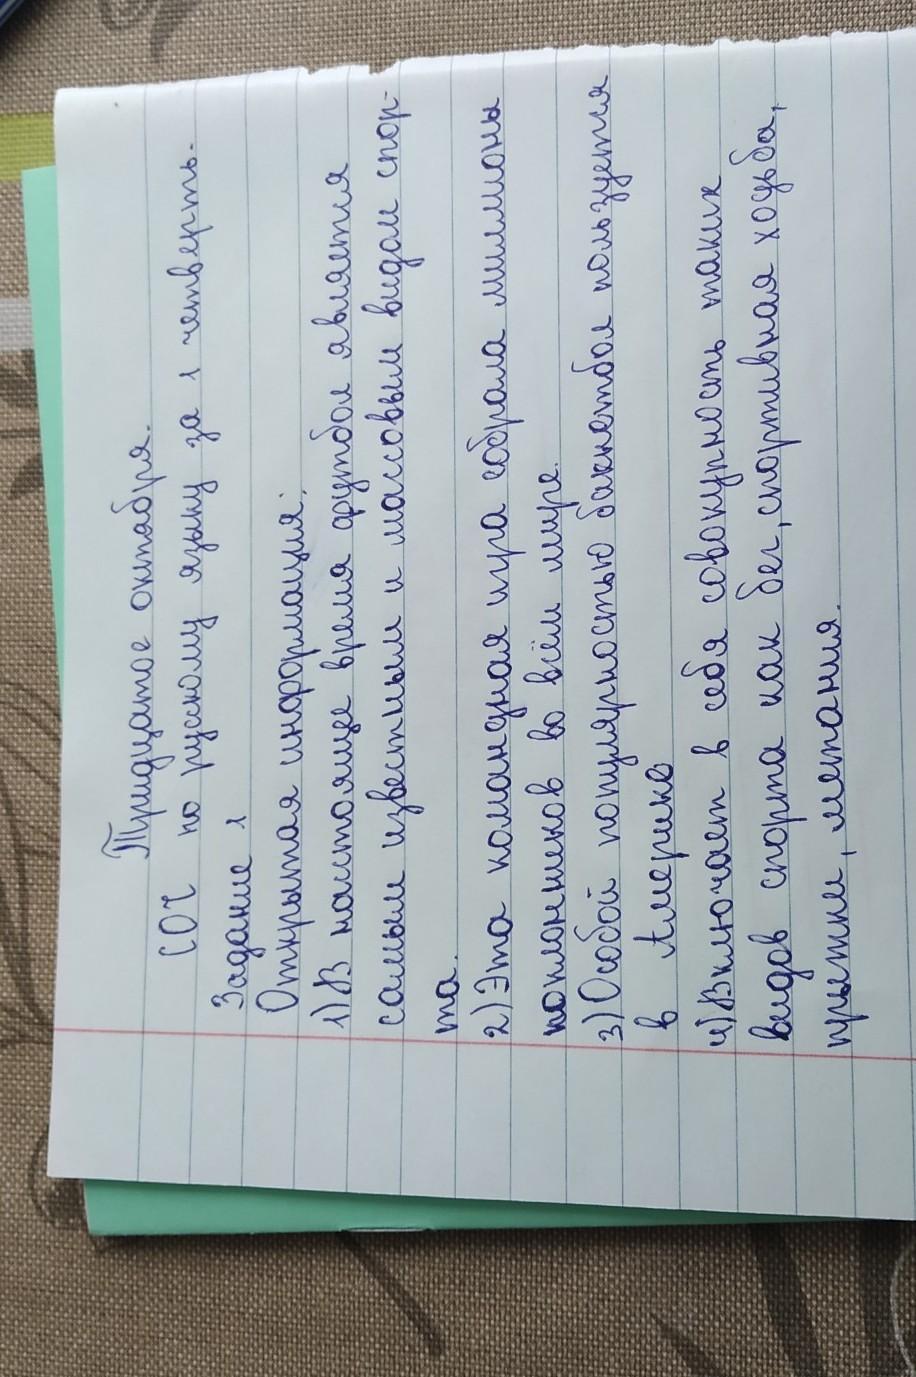 Тридцатое октября.
СОЧ по русскому языку за 1 четверть.
Задание 1
Открытая информация:
1) В настоящее время футбол является
самым известным и массовым видом спор-
та.
2) Эта командная игра собрала миллионы
поклонников во всём мире.
3) Особой популярностью баскетбол пользуется
в Америке
4) Включает в себя совокупность таких
видов спорта как бег, спортивная ходьба,
прыжки, метания.